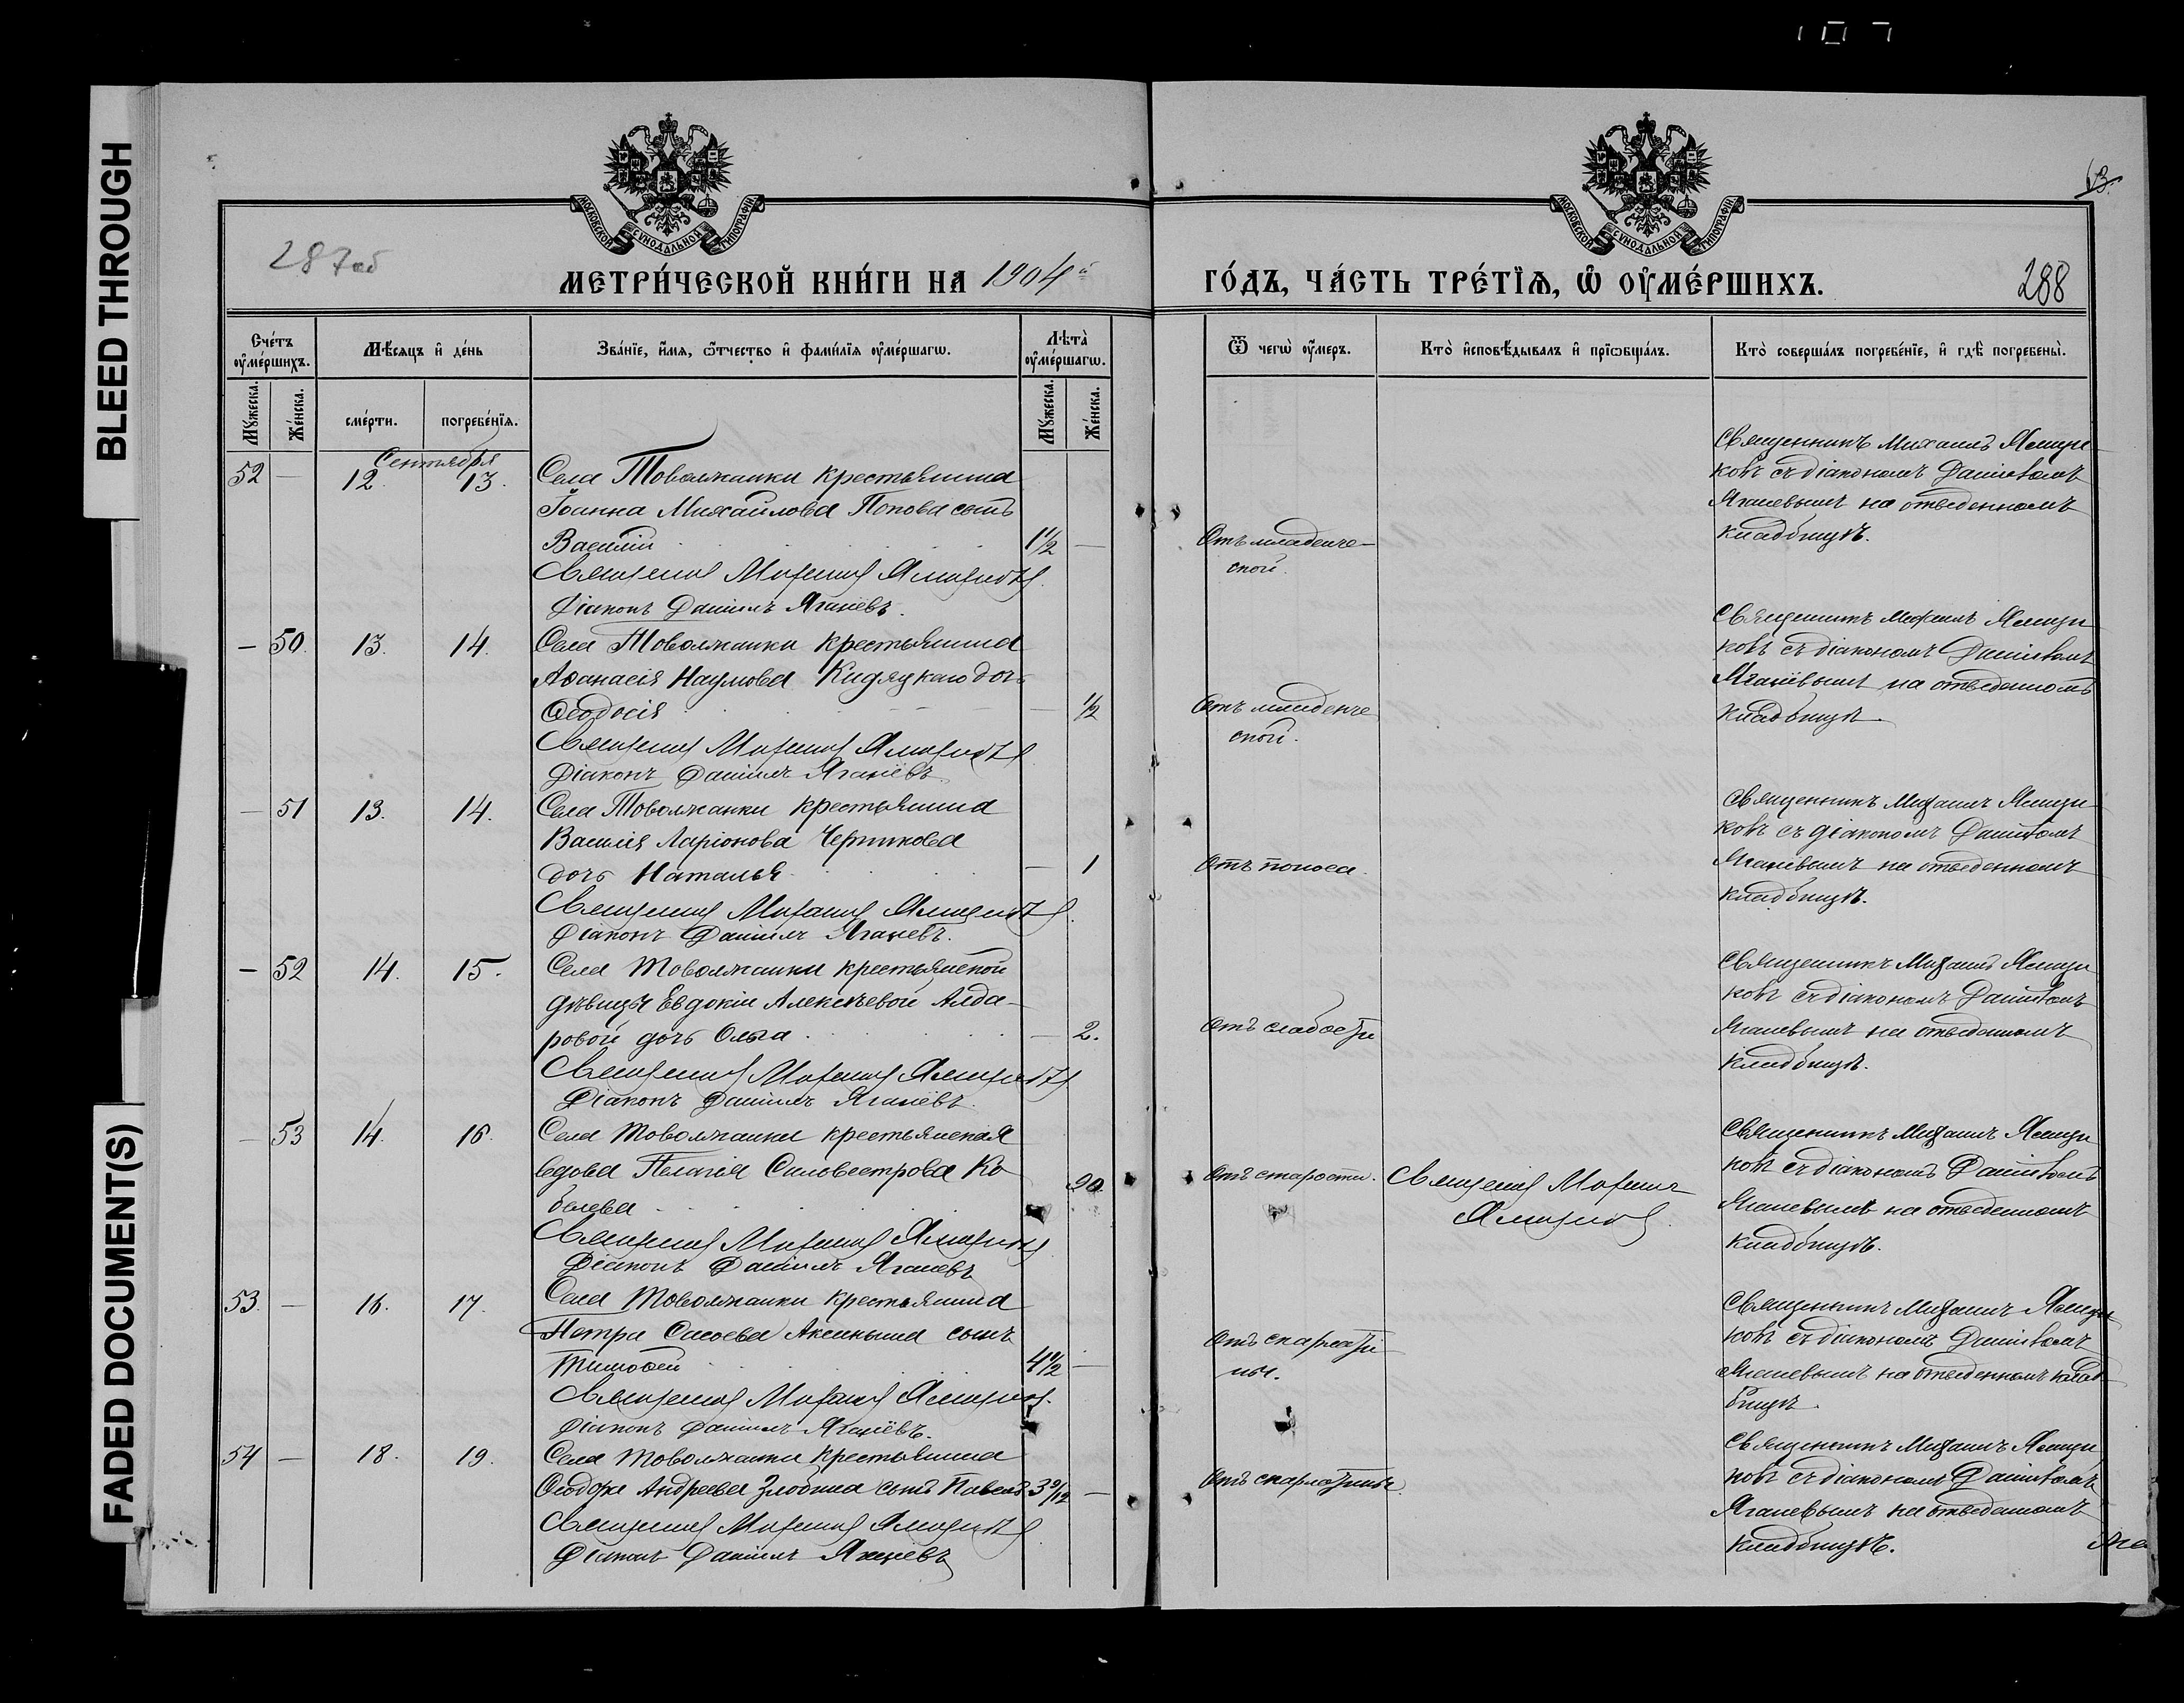 BLEED THROUGH
FADED DOCUMENT(S)
МОСКОВСКОЙ СУНОДАЛЬНОЙ ТИПОГРАФІИ
МОСКОВСКОЙ СУНОДАЛЬНОЙ ТИПОГРАФІИ
63.
287об
МЕТРИ́ЧЕСКОЙ КНИ́ГИ НА 1904й
ГО́ДЪ, ЧА́СТЬ ТРЕ́ТЇѦ, Ѡ ОУ҆МЕ́РШИХЪ.
288
Сче́тъ оу҆ме́ршихъ.
Мѣ́сяцъ и҆ де́нь
Зва́нїе, и҆́мѧ, ѻ҆́тчество и҆ фами́лїѧ оу҆ме́ршагѡ.
Лѣ̑та̀ оу҆ме́ршагѡ.
Ѿ чегѡ̀ оу҆́меръ.
Кто̀ и҆сповѣ́дывалъ и҆ прїѡбща́лъ.
Кто̀ соверша́лъ погребе́нїе, и҆ гдѣ̀ погребены̀.
Мꙋ́жеска. Же́нска.
сме́рти. погребе́нїѧ.
Мꙋ́жеска. Же́нска.
Сентября
52 — 12. 13. Села Товолжанки крестьянина
Іоанна Михайлова Попова сынъ
Василій 1½ —
Священникъ Михаилъ Ямщиковъ
Діаконъ Даніилъ Яганевъ.
Отъ младенче-
ской.
Священникъ Михаилъ Ямщи-
ковъ съ діакономъ Даніиломъ
Яганевымъ на отведенномъ
кладбищѣ.
— 50. 13. 14. Села Товолжанки крестьянина
Аѳанасія Наумова дочь
Ѳеодосія — ½
Священникъ Михаилъ Ямщиковъ
Діаконъ Даніилъ Яганевъ
Отъ младенче
ской.
Священникъ Михаилъ Ямщи
ковъ съ діакономъ Даніиломъ
Яганевымъ на отведенномъ
кладбищѣ.
— 51 13. 14. Села Товолжанки крестьянина
Василія Ларіонова Черникова
дочь Наталья — 1
Священникъ Михаилъ Ямщиковъ
Діаконъ Даніилъ Яганевъ.
Отъ поноса.
Священникъ Михаилъ Ямщи
ковъ съ діакономъ Даніиломъ
Яганевымъ на отведенномъ
кладбищѣ.
— 52 14. 15. Села Товолжанки крестьянской
дѣвицы Евдокіи Алексѣевой Алда-
ровой дочь Ольга — 2.
Священникъ Михаилъ Ямщиковъ
Діаконъ Даніилъ Яганевъ.
Отъ слабости
Священникъ Михаилъ Ямщи
ковъ съ діакономъ Даніиломъ
Яганевымъ на отведенномъ
кладбищѣ.
— 53 14. 16. Села Товолжанки крестьянская
вдова Пелагія Сильвестрова Ко
белева 90
Священникъ Михаилъ Ямщиковъ
Діаконъ Даніилъ Яганевъ
Отъ старости.
Священникъ Михаилъ
Ямщиковъ
Священникъ Михаилъ Ямщи
ковъ съ діакономъ Даніиломъ
Яганевымъ на отведенномъ
кладбищѣ.
53. — 16. 17. Села Товолжанки крестьянина
Петра Сысоева Аксиньина сынъ
Тимоѳей 4½ —
Священникъ Михаилъ Ямщиковъ.
Діаконъ Даніилъ Яганевъ.
Отъ скарлати
ны.
Священникъ Михаилъ Ямщи
ковъ съ діакономъ Даніиломъ
Яганевымъ на отведенномъ клад
бищѣ.
54 — 18. 19. Села Товолжанки крестьянина
Андреева Злобина сынъ Павелъ 3 9/12 —
Священникъ Михаилъ Ямщиковъ
Діаконъ Даніилъ Яганевъ
Отъ скарлатины.
Священникъ Михаилъ Ямщи
ковъ съ діакономъ Даніиломъ
Яганевымъ на отведенномъ
кладбищѣ.